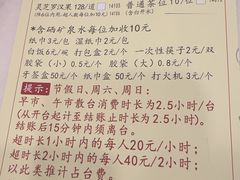 灵芝罗汉果 128/道 普通茶位 10/位
*含硒矿泉水每位加收10元
纸巾3元/包 湿纸巾2元/包
白饭6元/碗 打包盒2元/个 一次性筷子2元/双
胶袋(小)0.5元/个 胶袋(大)0.8元/个
牙签盒50元/个 纸巾盒50元/个 打火机3元/个
提示：节假日、周六、周日：
早市、午市散台消费时长为2.5小时/台
(从开台起计至结账止时长为2.5小时)
结账后15分钟内须离台。
超时长1小时内的每人20元/小时；
超时长2小时内的每人40元/2小时；
以此类推计占台费。